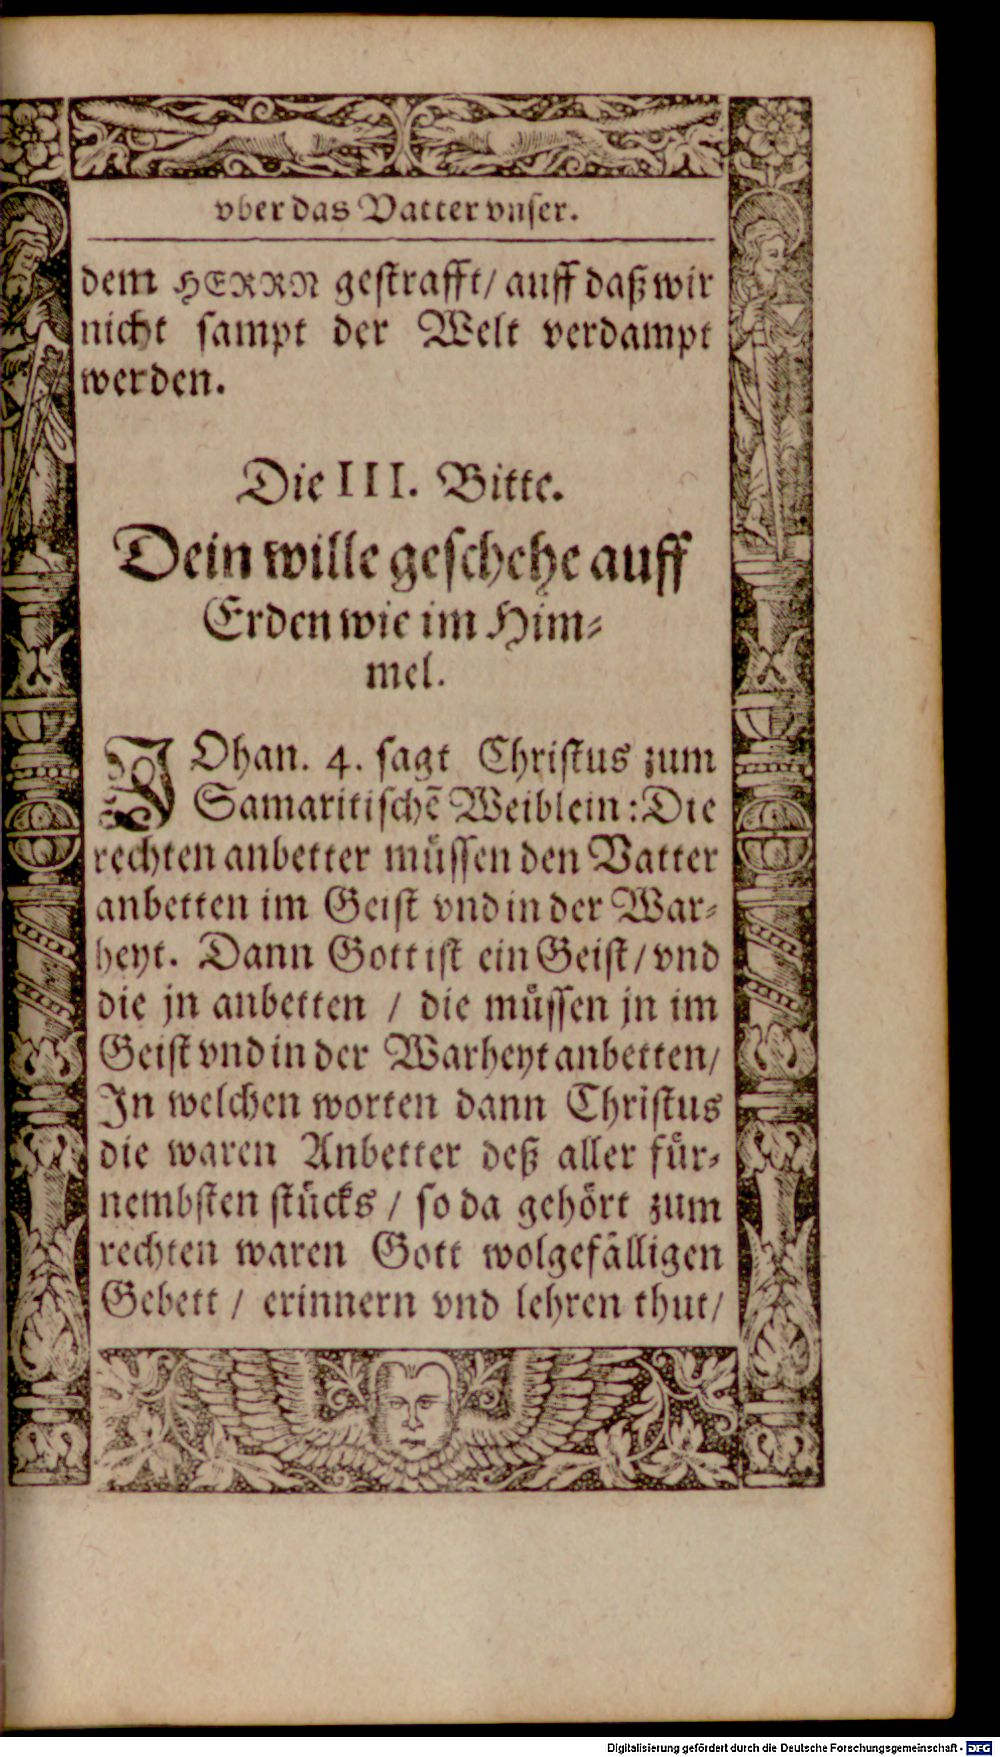 vber das Vatter vnser.
dem HERRN gestrafft/ auff daß wir
nicht sampt der Welt verdampt
werden.
Die III. Bitte.
Dein wille geschehe auff
Erden wie im Him-
mel.
JOhan. 4. sagt Christus zum
Samaritischē Weiblein: Die
rechten anbetter müssen den Vatter
anbetten im Geist vnd in der War-
heyt. Dann Gott ist ein Geist/ vnd
die jn anbetten / die müssen jn im
Geist vnd in der Warheyt anbetten/
In welchen worten dann Christus
die waren Anbetter deß aller für-
nembsten stücks / so da gehört zum
rechten waren Gott wolgefälligen
Gebett / erinnern vnd lehren thut/
Digitalisierung gefördert durch die Deutsche Forschungsgemeinschaft - DFG